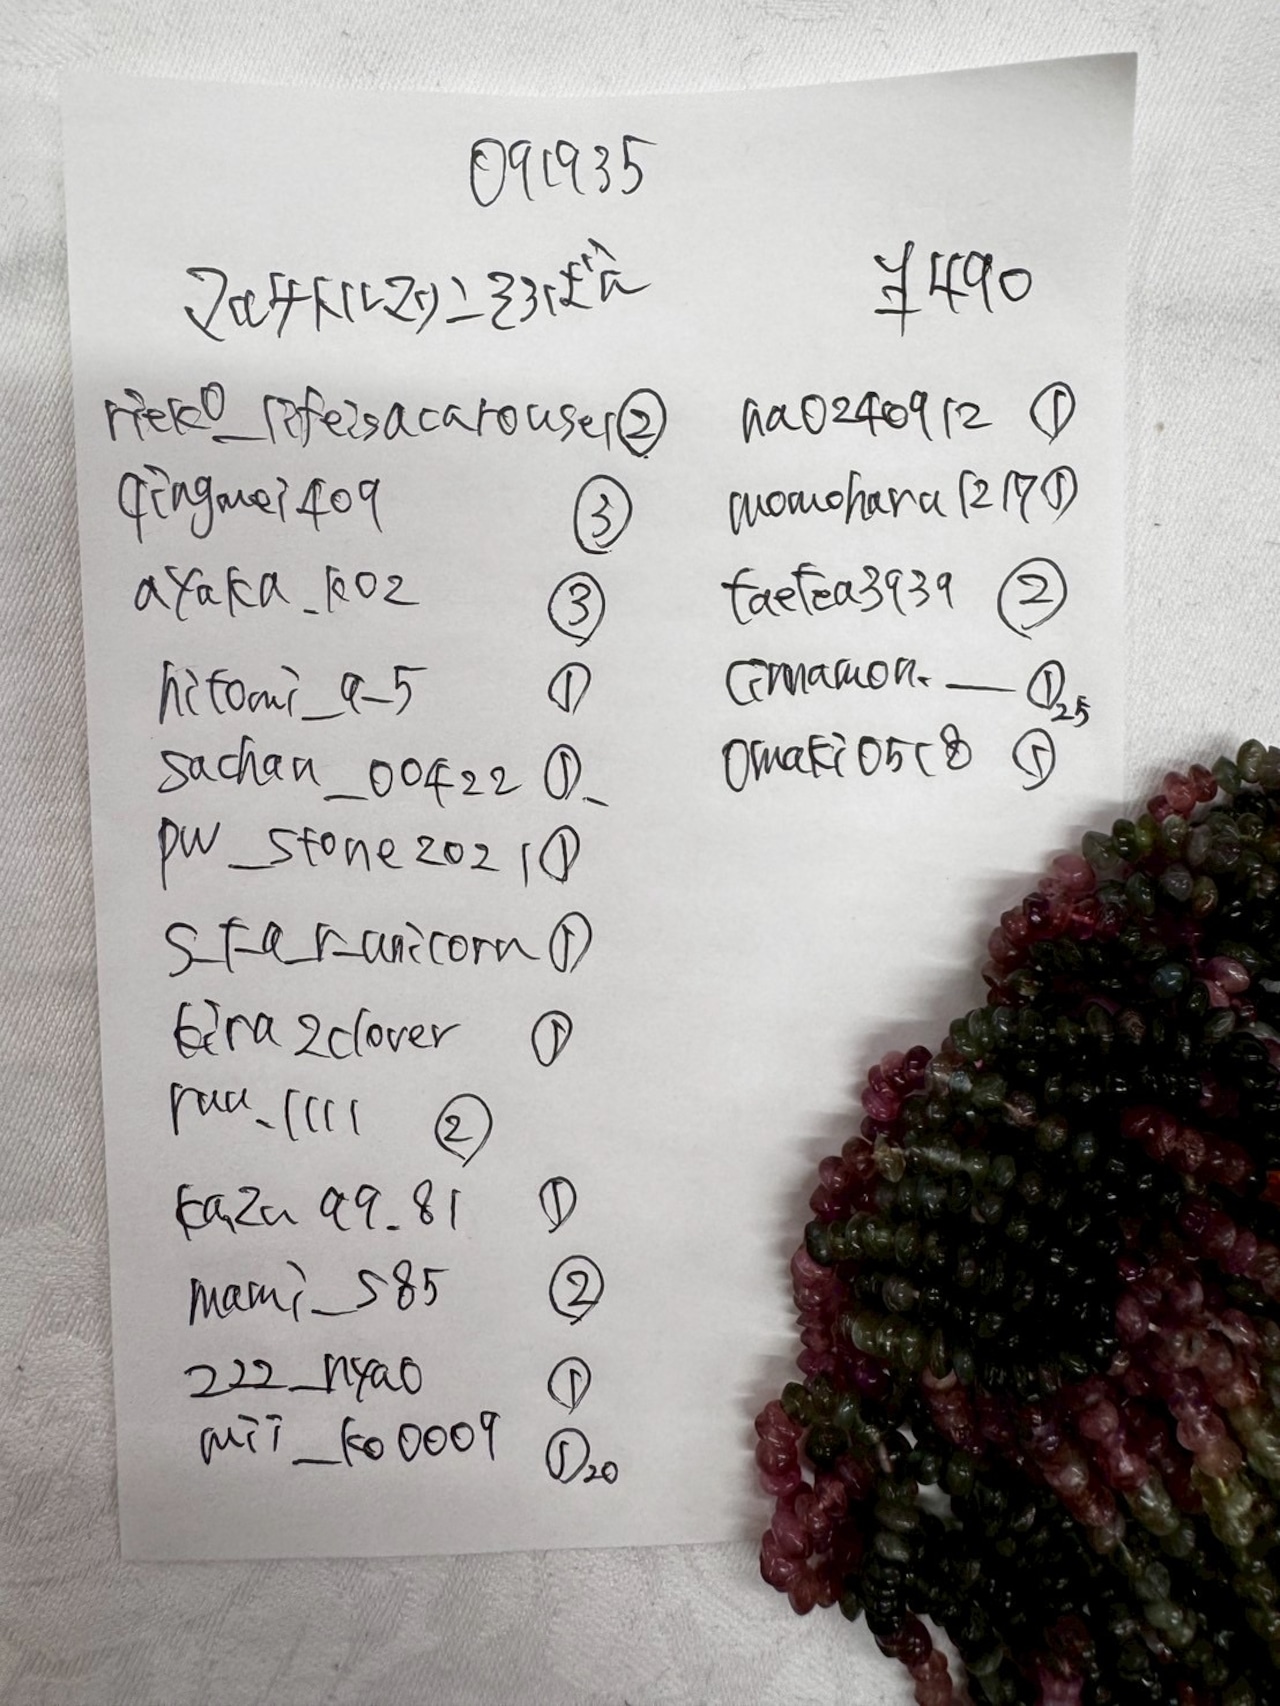 091935
¥490
rieko_lifeisacarousel ②
qingmei409 ③
ayaka_k02 ③
hitomi_a_5 ①
sachan_00422 ①
pw_stone2021 ①
s_t_a_r_unicorn ①
kira2clover ①
ruu_1111 ②
kazu99_81 ①
mami_s85 ②
222_nyao ①
mii_ko0009 ①20
na0240912 ①
momoharu1217 ①
taetea3939 ②
cinnamon.__ ①25
omaki0518 ①